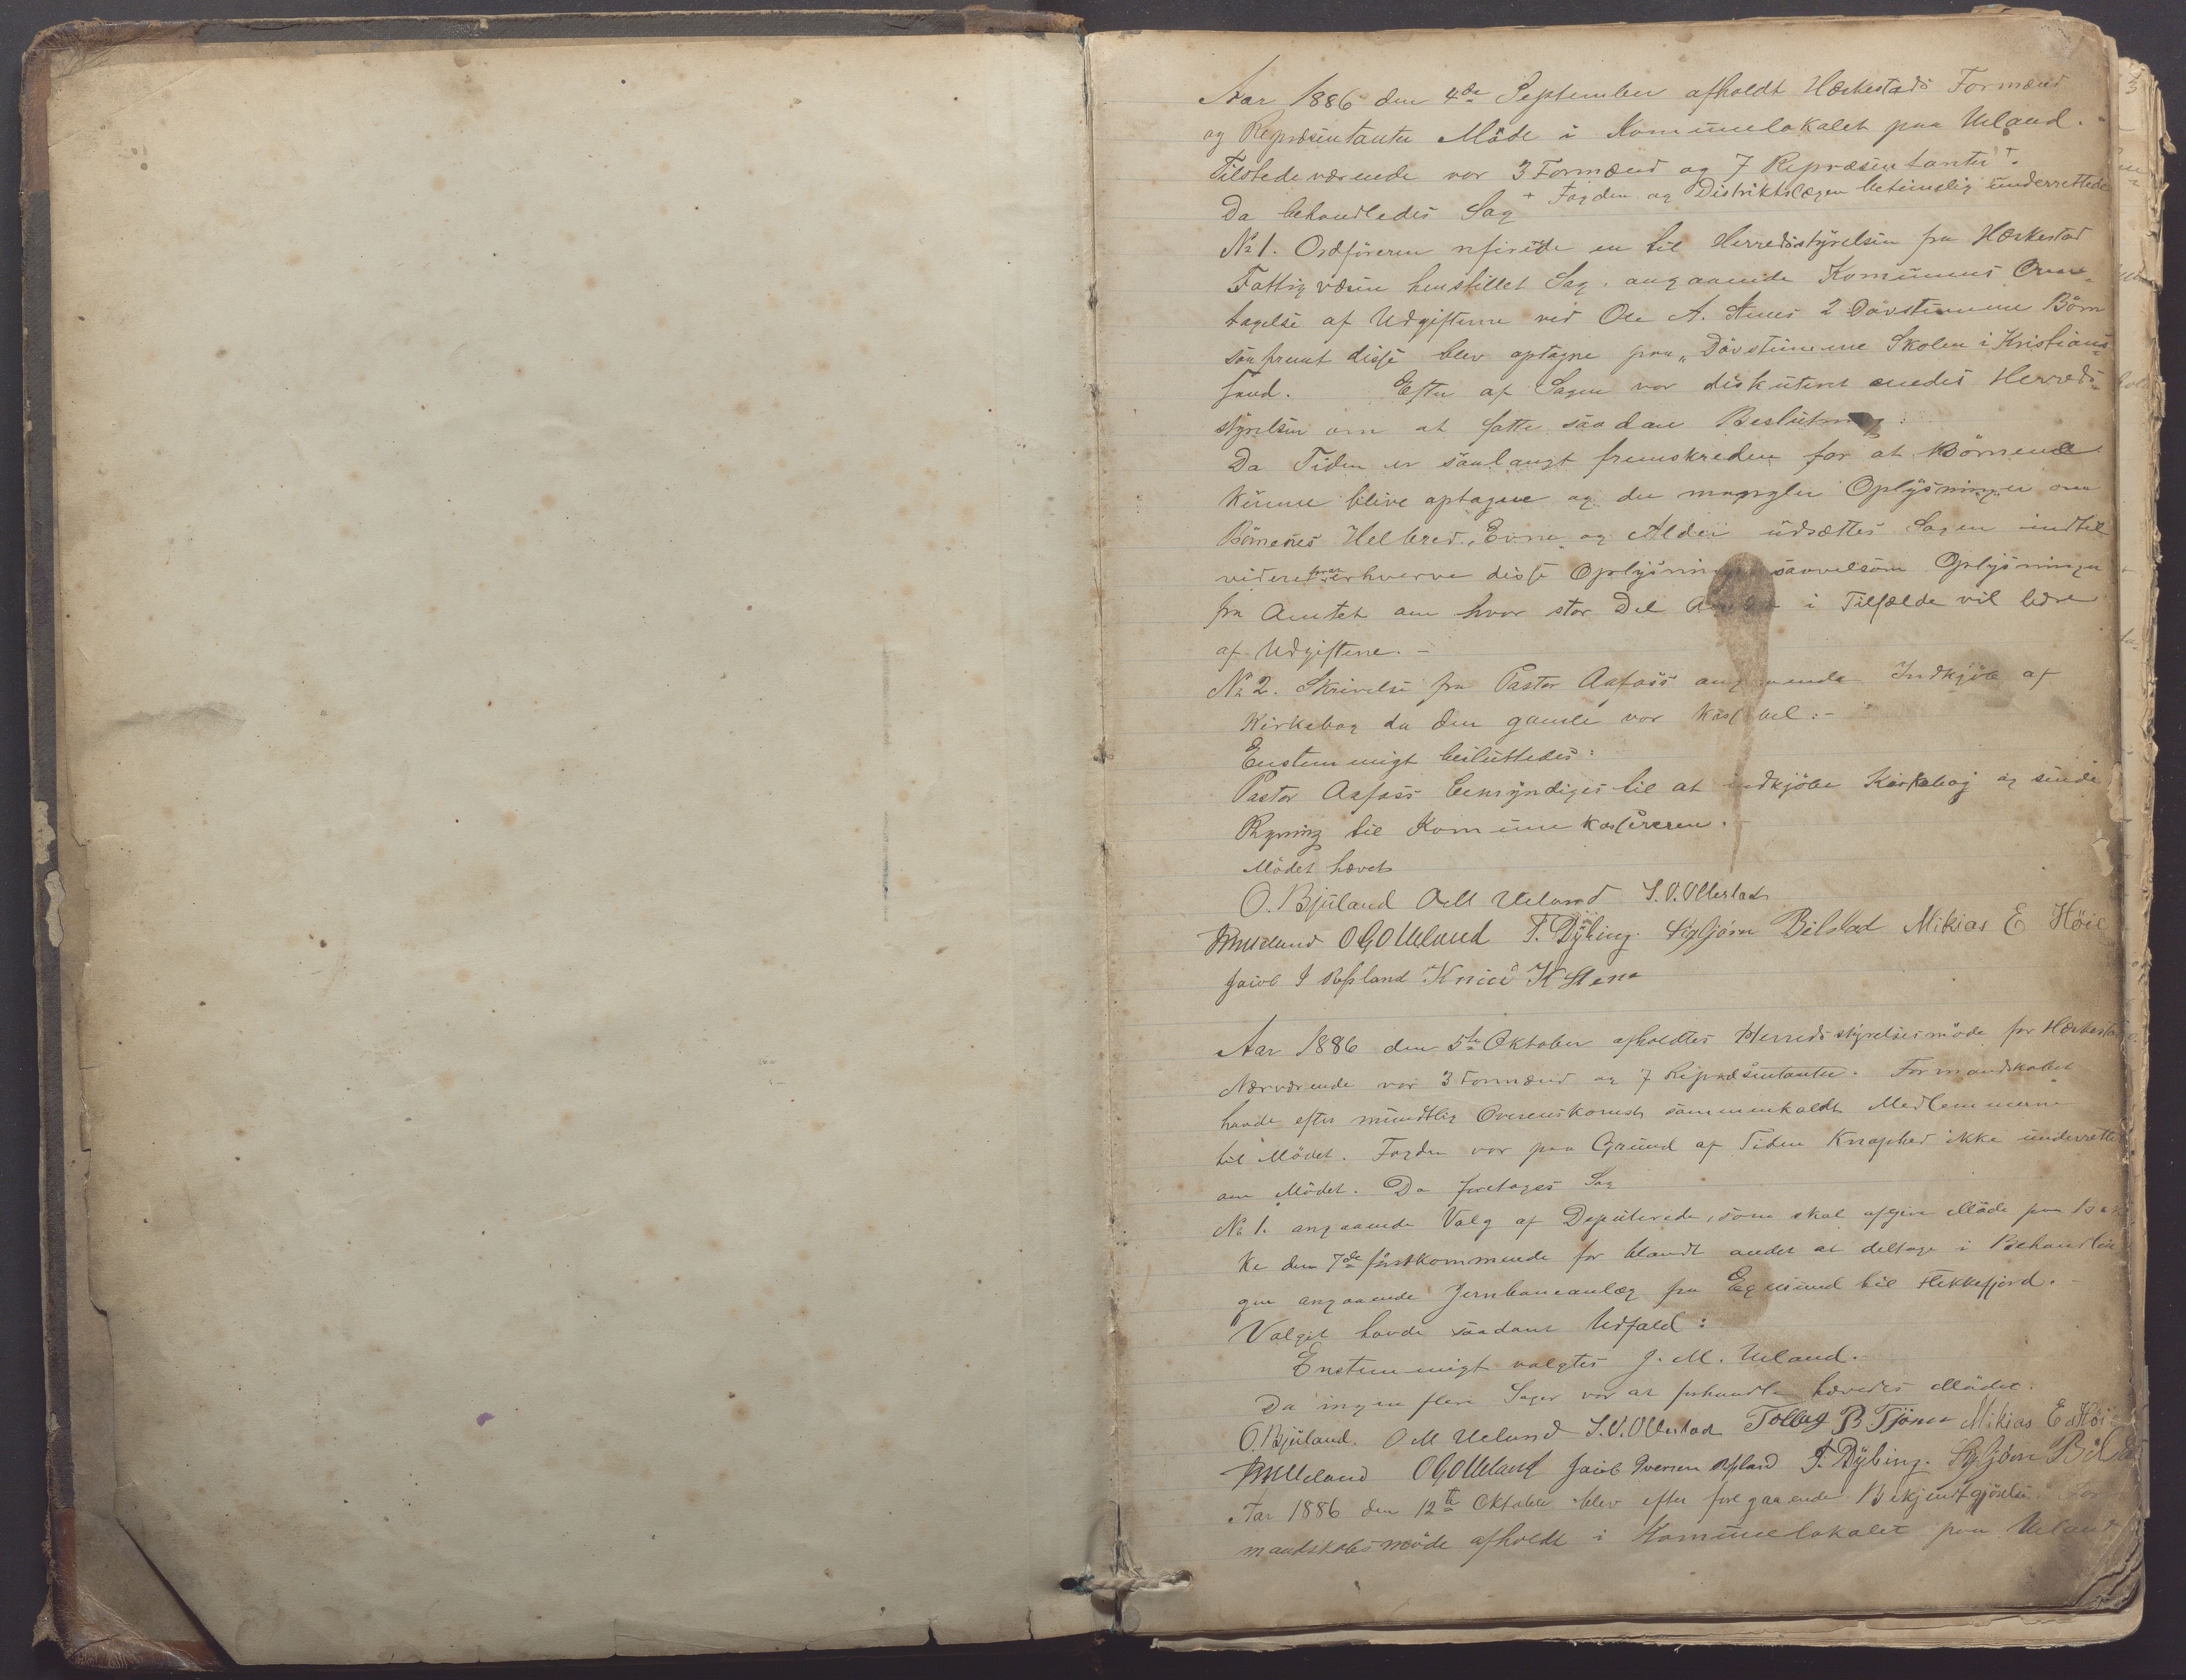 Aar 1886 den 4de September afholdt Heskestads Formænd
og Repræsentanter Möde i Kommunelokalet paa Ueland.
Tilstedeværende var 3 Formænd og 7 Repræsentanter +.
+ Fogden og Distriktslægen betimelig underrettede
Da behandledes Sag
No 1. Ordföreren refirede en til Herredsstyrelsen fra Heskestad
Fattigvæsen henstillet Sag. angaaende Kommunens Over-
tagelse af Udgifterne ved Ole A. 2 Dövstumme Börn
saafremt disse blev optagne paa „Dövstumme Skolen i Kristians-
sand. Efter at Sagen var diskuteret enedes Herreds-
styrelsen om at fatte saadan Beslutning:
Da Tiden er saalangt fremskreden for at Börnene
kunne blive optagne og der mangler Oplysninger om
Börnenes Helbred, Evne og Alder udsættes Sagen indtil
videre for at erhverve disse Oplysninger saavelsom Oplysninger
fra Amtet om hvor stor Del Amtet i Tilfælde vil bære
af Udgifterne. -
No 2. Skrivelse fra Pastor Aafoss angaaende Indkjöb af
Kirkebog da den gamle var -
Enstemmigt besluttedes:
Pastor Aafoss bemyndiges til at indkjöbe Kirkebog og sende
Regning til Kommunekassereren. -
Mödet hævet
O. Bjuland O M Ueland S. O. Ollestad
JMUeland O G O Ueland T. Dybing. Sigbjörn Bilstad Mikias E Höie
Jacob I Refsland Knud K Stene
Aar 1886 den 5te Oktober afholdtes Herredsstyrelsesmöde for Heskestad.
Nærværende var 3 Formænd og 7 Repræsentanter. Formandskabet
havde efter mundtlig Overenskomst sammenkaldt Medlemmerne
til Mödet. Fogden var paa Grund af Tiden Knaphed ikke underrettet
om Mödet. Da foretages Sag
No 1. angaaende Valg af Deputerede, som skal afgive Möde paa
ke den 7de förstkommende for blandt andet at deltage i Behandlin
gen angaaende Jernbaneanlæg fra Egersund til Flekkefjord. -
Valget havde saadant Udfald:
Enstemmigt valgtes J. M. Ueland. -
Da ingen flere Sager var at forhandle hævedes Mödet.
O. Bjuland. O M Ueland S. O. Ollestad Tollag B Tjörn Mikias E Höie
JMUeland O G O Ueland Jacob Iversen Refsland T. Dybing. Sigbjörn Bilstad
Aar 1886 den 12te Oktober blev efter foregaaende Bekjendtgjörelse For
mandskabsmöde afholdt i Kommunelokalet paa Ueland